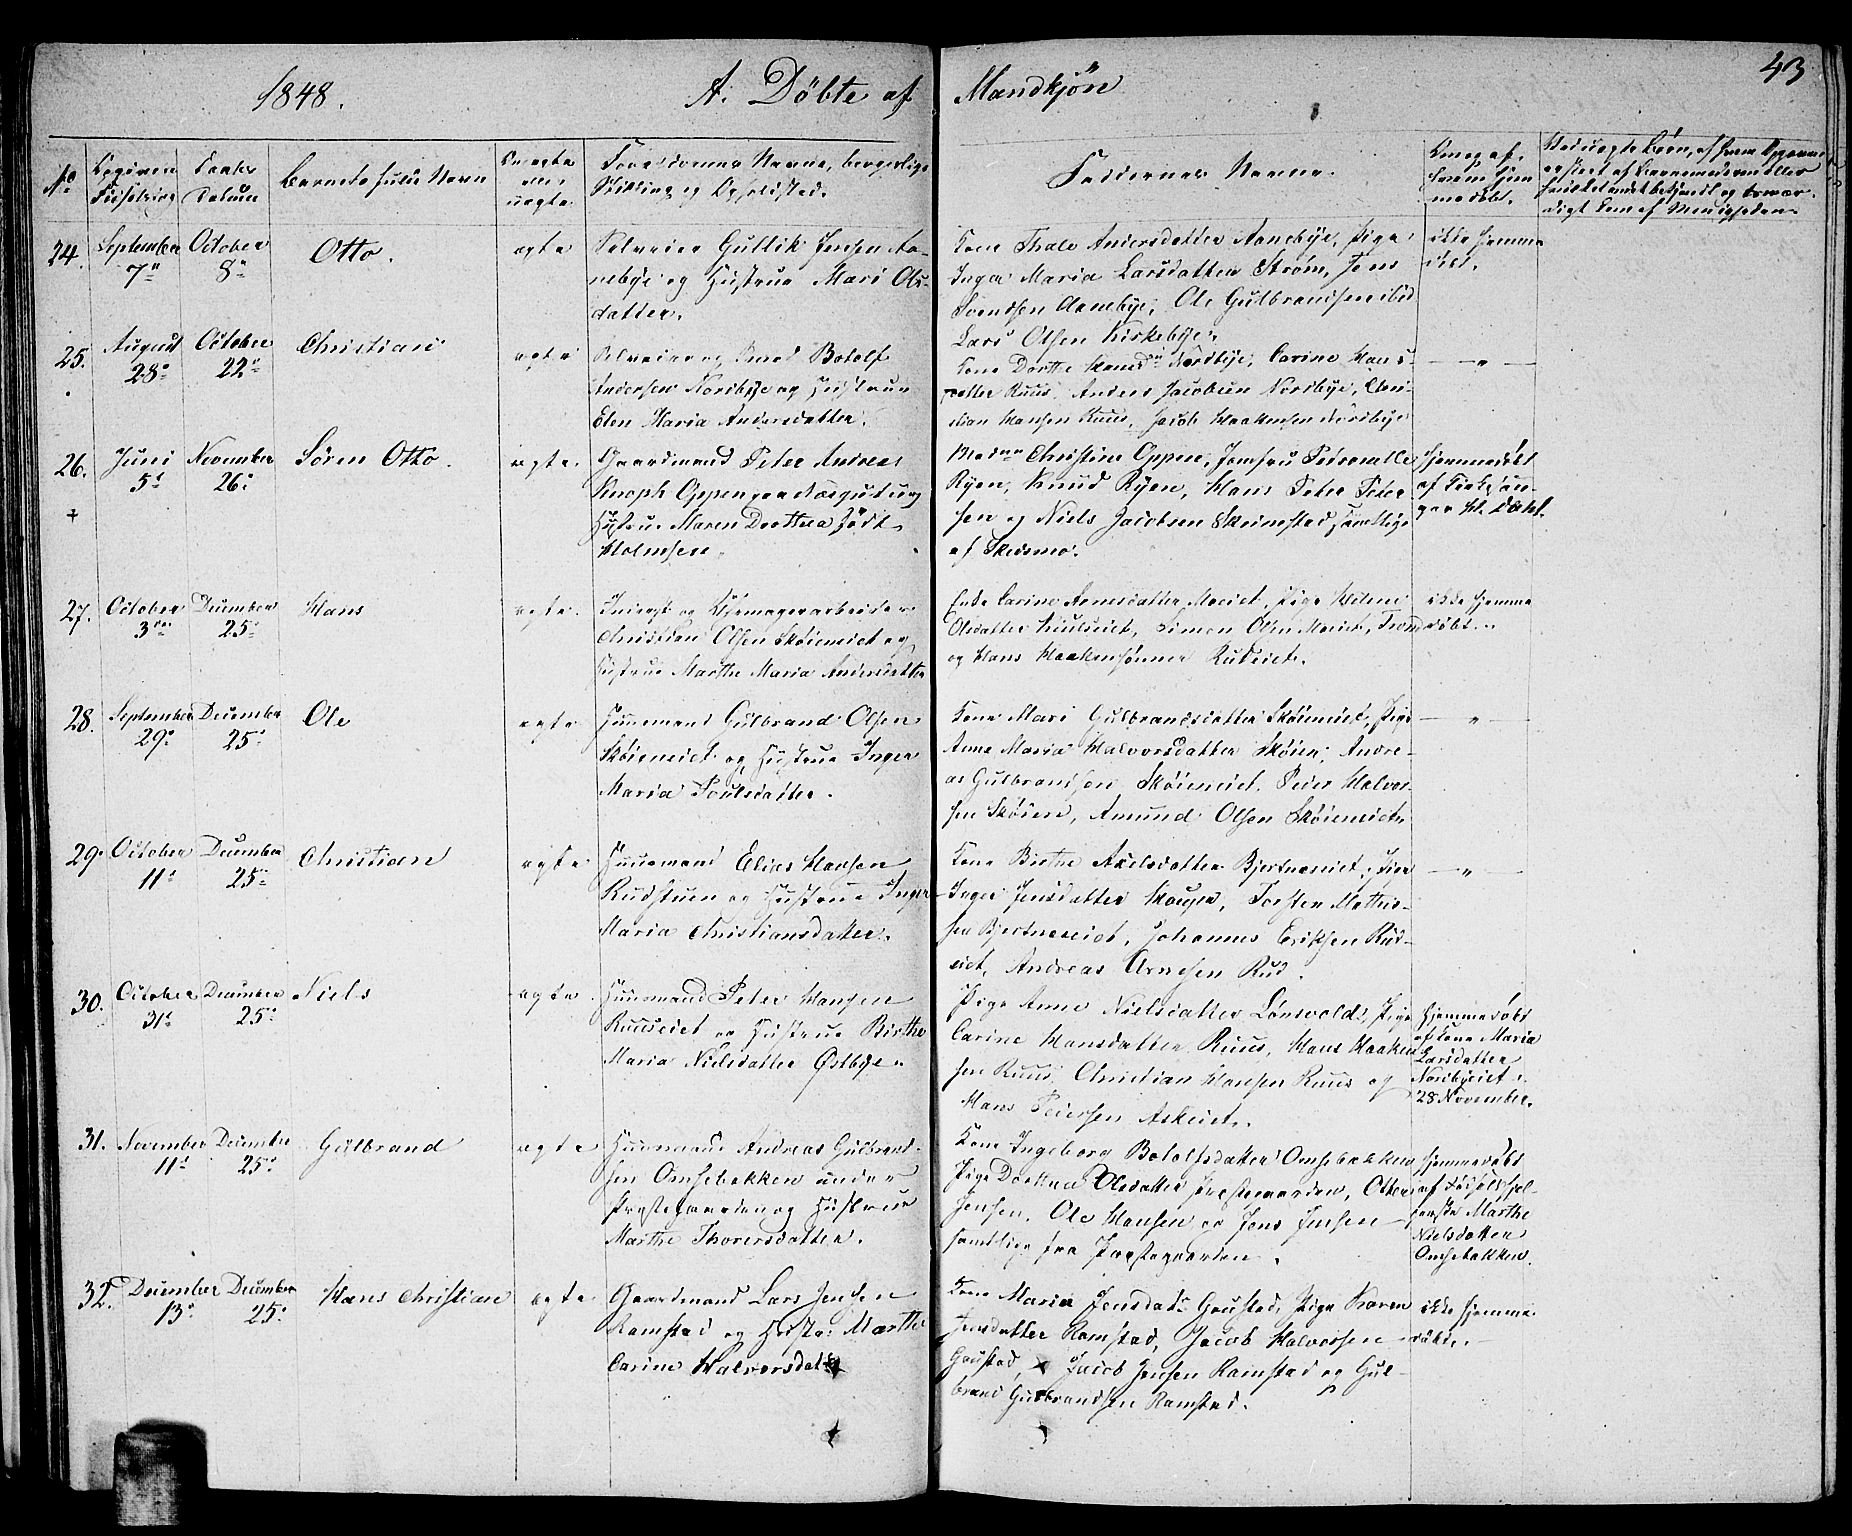 1848.
A. Døbte af Mandkjøn
43
No
Barnets fulde Navn
Forældrenes Navne, borgerlige
Stilling og Opholdsted.
Faddernes Navne.
24. September 7de October 8de Otto. ægte Selveier Gullik Jensen Aa-
nebye og Hustrue Mari Ols-
datter.
Kone Thale Andersdatter Aanebye, Pige
Inger Maria Larsdatter Strøm, Jens
Svendsen Aanebye, Ole Gulbrandsen ibid
Lars Olsen Kirkebye.
ikke hjemme
døbt.
25. August 28de October 22de Christian ægte Selveier og Smed Botolf
Andersen Nordbye og Hustrue
Elen Maria Andersdatter.
Kone Dorthe Nordbye, Carine Hans-
datter Ruus, Anders Jacobsen Nordbye, Chri-
stian Hansen Ruus, Jacob Haakensen Nordbye
— " —
26. Juni 5te November 26de Søren Otto. ægte. Gaardmand Peter Andreas
Knoph Oppengaardtangen og
Hustrue Maren Dorthea født
Holmsen.
Christine Oppen, Jomfru Petronelle
Ryen, Knud Ryen, Hans Peter Peter-
sen og Niels Jacobsen Skrimstad samtlige
af Skedsmo.
Hjemmedøbt
af Kirkesan-
ger Kl. Dahl.
27. October 3die December 25de Hans ægte. Inderst og
Christian Olsen Skøieneiet og
Hustrue Marthe Maria Andersdatter
Enke Carine Arnesdatter Moeiet, Pige Helene
Olsdatter Simen Olsen Moeiet, Trond
og Hans Haakensønner Rudeiet.
ikke hjemme
døbt.
28. September 29de December 25de Ole ægte Huusmand Gulbrand Olsen
Skøieneiet og Hustrue Inger
Maria Poulsdatter.
Kone Mari Gulbrandsdatter Skøieneiet, Pige
Anne Maria Halvorsdatter Skøien, Andre-
as Gulbrandsen Skøieneiet, Peder Halvor-
sen Skøien, Amund Olsen Skøieneiet
— " —
29. October 11te December 25de Christian ægte Huusmand Elias Hansen
Rudstuen og Hustrue Inger
Maria Christiansdatter.
Kone Birthe Axelsdatter Bjertneseiet, Pige
Inger Jensdatter Hougen, Torsten Mathis-
sen Bjertneseiet, Johannes Eriksen Rud-
eiet, Andreas Arnesen Rud.
— " —
30. October 31te December 25de Niels ægte Huusmand Peter Hansen
Ruuseiet og Hustrue Birthe
Maria Nielsdatter Østbye.
Pige Anne Nielsdatter Lønvold, Pige
Carine Hansdatter Ruus, Hans Haaken-
sen Ruus, Christian Hansen Ruus og
Hans Pedersen Askeiet.
Hjemmedøbt
af Kone Maria
Larsdatter
Nordbyeiet
28 November.
31. November 11te December 25de Gulbrand ægte Huusmand Andreas Gulbrand-
sen Omsebakken under
Præstegaarden og Hustrue
Marthe Thoresdatter.
Kone Ingeborg Botolfsdatter Omsebakken
Pige Dorthea Olsdatter Præstegaarden, Otter
Jensen, Ole Hansen og Jens Jensen
samtlige fra Præstegaarden.
Hjemmedøbt
af Fødselshjel-
perske Marthe
Nielsdatter
Omsebakken.
32. December 13de December 25de Hans Christian ægte. Gaardmand Lars Jensen
Ramstad og Hustr: Marthe
Carine Halvorsdatter
Kone Maria Jensdatt: Goustad, Pige Karen
Jensdatter Ramstad, Jacob Halvorsen
Goustad, Jacob Jensen Ramstad og Gul-
brand Gulbrandsen Ramstad.
ikke hjemme-
døbt.